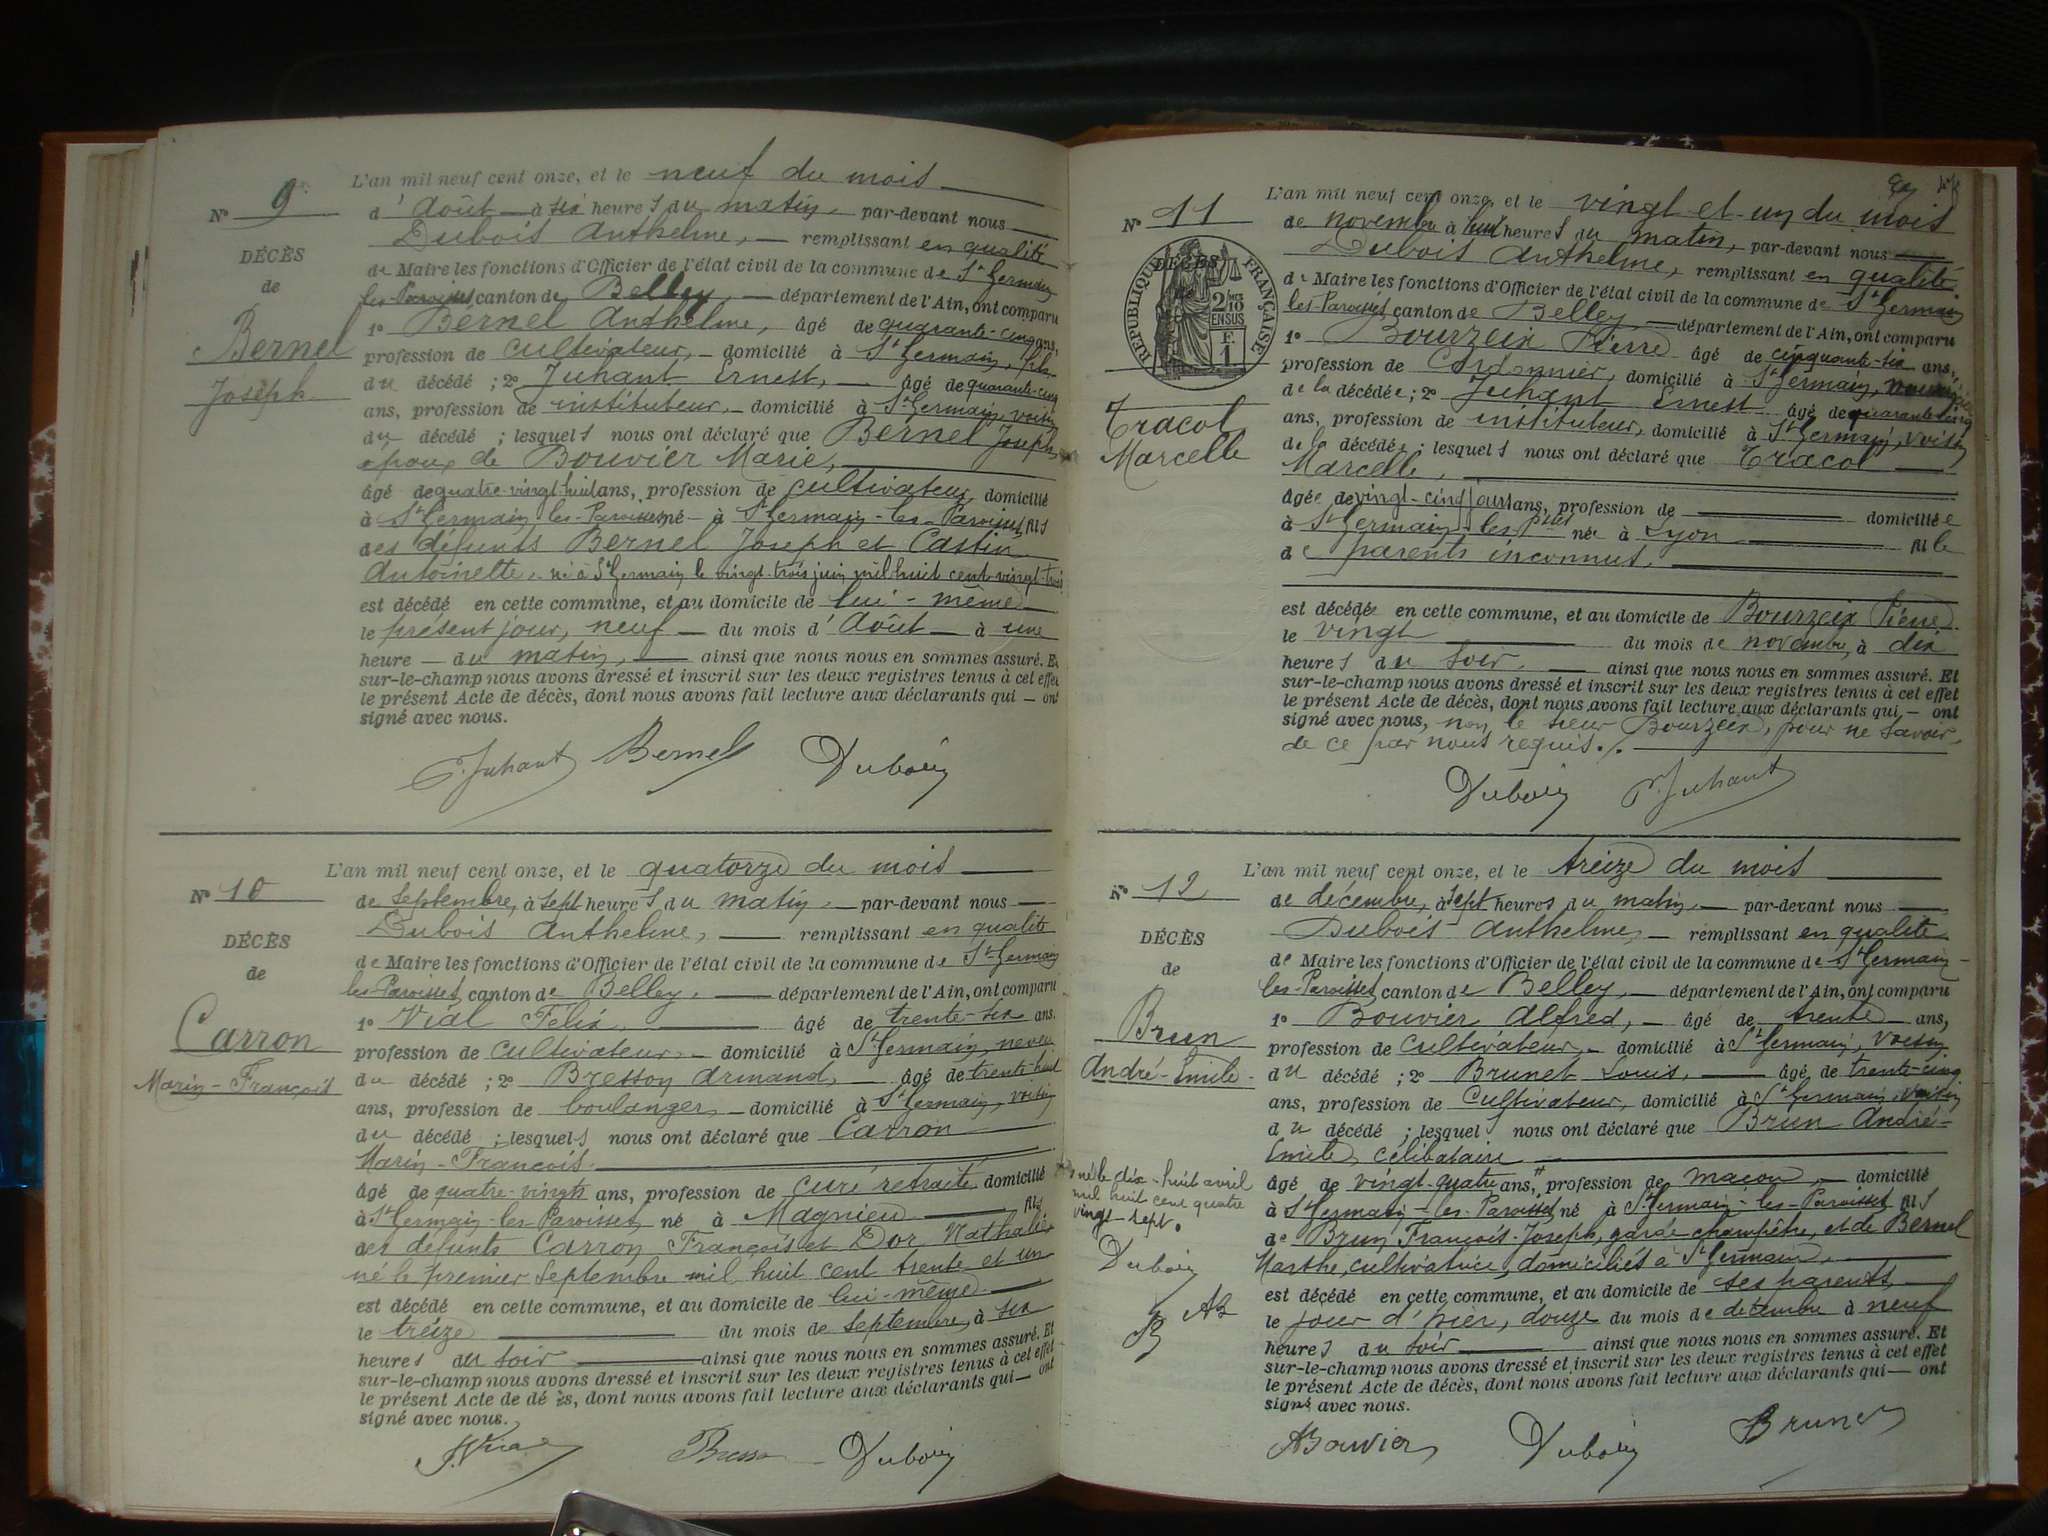 L'an mil neuf cent onze, et le neuf du mois
N° 9
d'août à six heures du matin, par-devant nous
Dubois Anthelme, remplissant en qualité
DÉCÈS
de Maire les fonctions d'Officier de l'état civil de la commune de St Germain
de
les-Paroisses canton de Belley, département de l'Ain, ont comparu
Bernel
Joseph
1° Bernel Anthelme, âgé de quarante-cinq ans,
profession de cultivateur, domicilié à St Germain, fils
du décédé ; 2° Juhant Ernest, âgé de quarante-cinq
ans, profession de instituteur, domicilié à St Germain, voisin
du décédé ; lesquels nous ont déclaré que Bernel Joseph,
époux de Bouvier Marie,
âgé de quatre-vingt-huit ans, profession de cultivateur, domicilié
à St Germain-les-Paroisses né à St Germain-les-Paroisses fils
des défunts Bernel Joseph et Castin
Antoinette, né à St Germain le vingt-trois juin mil huit cent vingt-trois
est décédé en cette commune, et au domicile de lui-même
le présent jour, neuf du mois d'Août à une
heure du matin, ainsi que nous nous en sommes assuré. Et
sur-le-champ nous avons dressé et inscrit sur les deux registres tenus à cet effet
le présent Acte de décès, dont nous avons fait lecture aux déclarants qui — ont
signé avec nous.
E. Juhant Bernel Dubois
L'an mil neuf cent onze, et le quatorze du mois
N° 10
de septembre, à sept heures du matin, par-devant nous
Dubois Anthelme, remplissant en qualité
DÉCÈS
de Maire les fonctions d'Officier de l'état civil de la commune de St Germain
de
les-Paroisses canton de Belley, département de l'Ain, ont comparu
Carron
Marin-François
1° Vial Félix, âgé de trente-six ans,
profession de cultivateur, domicilié à St Germain, neveu
du décédé ; 2° Bresson Armand, âgé de trente-huit
ans, profession de boulanger, domicilié à St Germain, voisin
du décédé ; lesquels nous ont déclaré que Carron
Marin-François
âgé de quatre-vingts ans, profession de curé retraité domicilié
à St Germain-les-Paroisses, né à Magnieu fils
des défunts Carron François et Dor Nathalie
né le premier Septembre mil huit cent trente et un
est décédé en cette commune, et au domicile de lui-même
le treize du mois de septembre, à six
heures du soir ainsi que nous nous en sommes assuré. Et
sur-le-champ nous avons dressé et inscrit sur les deux registres tenus à cet effet
le présent Acte de dé ès, dont nous avons fait lecture aux déclarants qui — ont
signé avec nous.
F. Vial Bresson Dubois
L'an mil neuf cent onze, et le vingt et un du mois
N° 11
de novembre à huit heures du matin, par-devant nous
Dubois Anthelme, remplissant en qualité
DÉCÈS
RÉPUBLIQUE FRANÇAISE
2/10 EN SUS
F. 1
de Maire les fonctions d'Officier de l'état civil de la commune de St Germain
les Paroisses canton de Belley, département de l'Ain, ont comparu
Tracol
Marcelle
1° Bourzeix Pierre âgé de cinquante-six ans,
profession de Cordonnier, domicilié à St Germain,
de la décédée ; 2° Juhant Ernest âgé de quarante-cinq
ans, profession de instituteur, domicilié à St Germain, voisin
de la décédée ; lesquels nous ont déclaré que Tracol
Marcelle,
âgée de vingt-cinq jours ans, profession de domiciliée
à St Germain-les-Pses née à Lyon fille
de parents inconnus.
est décédée en cette commune, et au domicile de Bourzeix Pierre
le vingt du mois de novembre, à dix
heures du soir, ainsi que nous nous en sommes assuré. Et
sur-le-champ nous avons dressé et inscrit sur les deux registres tenus à cet effet
le présent Acte de décès, dont nous avons fait lecture aux déclarants qui — ont
signé avec nous, non le sieur Bourzeix, pour ne savoir,
de ce par nous requis.
Dubois E. Juhant
L'an mil neuf cent onze, et le treize du mois
N° 12
de décembre, à sept heures du matin, par-devant nous
Dubois Anthelme, remplissant en qualité
DÉCÈS
de Maire les fonctions d'Officier de l'état civil de la commune de St Germain-
de
les-Paroisses canton de Belley, département de l'Ain, ont comparu
Brun
André-Emile
1° Bouvier Alfred, âgé de trente ans,
profession de cultivateur, domicilié à St Germain, voisin
du décédé ; 2° Brunet Louis, âgé de trente-cinq
ans, profession de cultivateur, domicilié à St Germain, voisin
du décédé ; lesquel nous ont déclaré que Brun André-
Emile, célibataire
âgé de vingt-quatre ans, profession de maçon, domicilié
à St Germain-les-Paroisses né à St Germain-les-Paroisses fils
de Brun François-Joseph, garde-champêtre, et de Bernel
Marthe, cultivatrice, domiciliés à St Germain,
est décédé en cette commune, et au domicile de ses parents
le jour d'hier, douze du mois de décembre à neuf
heures du soir ainsi que nous nous en sommes assuré. Et
sur-le-champ nous avons dressé et inscrit sur les deux registres tenus à cet effet
le présent Acte de décès, dont nous avons fait lecture aux déclarants qui — ont
signé avec nous.
né le dix-huit avril
mil huit cent quatre
vingt-sept.
Dubois
AB
B
ABouvier Dubois Brunet